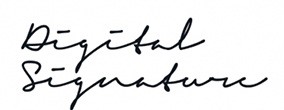 Digital
Signature